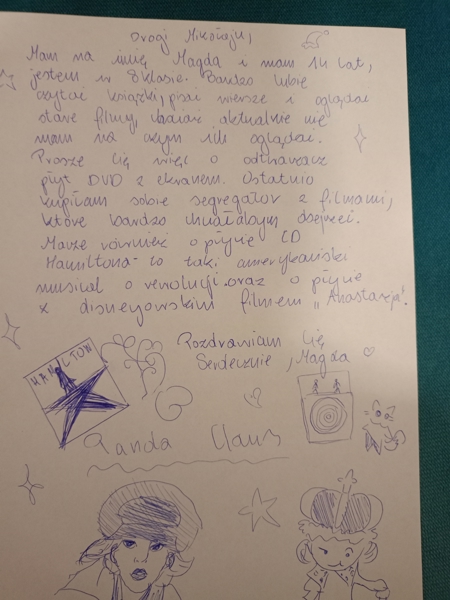 Drogi Mikołaju,
Mam na imię Magda i mam 14 lat,
jestem w 8 klasie. Bardzo lubię
czytać książki, pisać wiersze i oglądać
stare filmy, chociaż aktualnie nie
mam na czym ich oglądać.
Proszę Cię więc o odtwarzacz
płyt DVD z ekranem. Ostatnio
kupiłam sobie segregator z filmami,
które bardzo chciałabym obejrzeć.
Marzę również o płycie CD
Hamiltona - to taki amerykański
musical o rewolucji oraz o płycie
z disneyowskim filmem „Anastazja".
Pozdrawiam Cię
Serdecznie, Magda
HAMILTON
Panda Claus